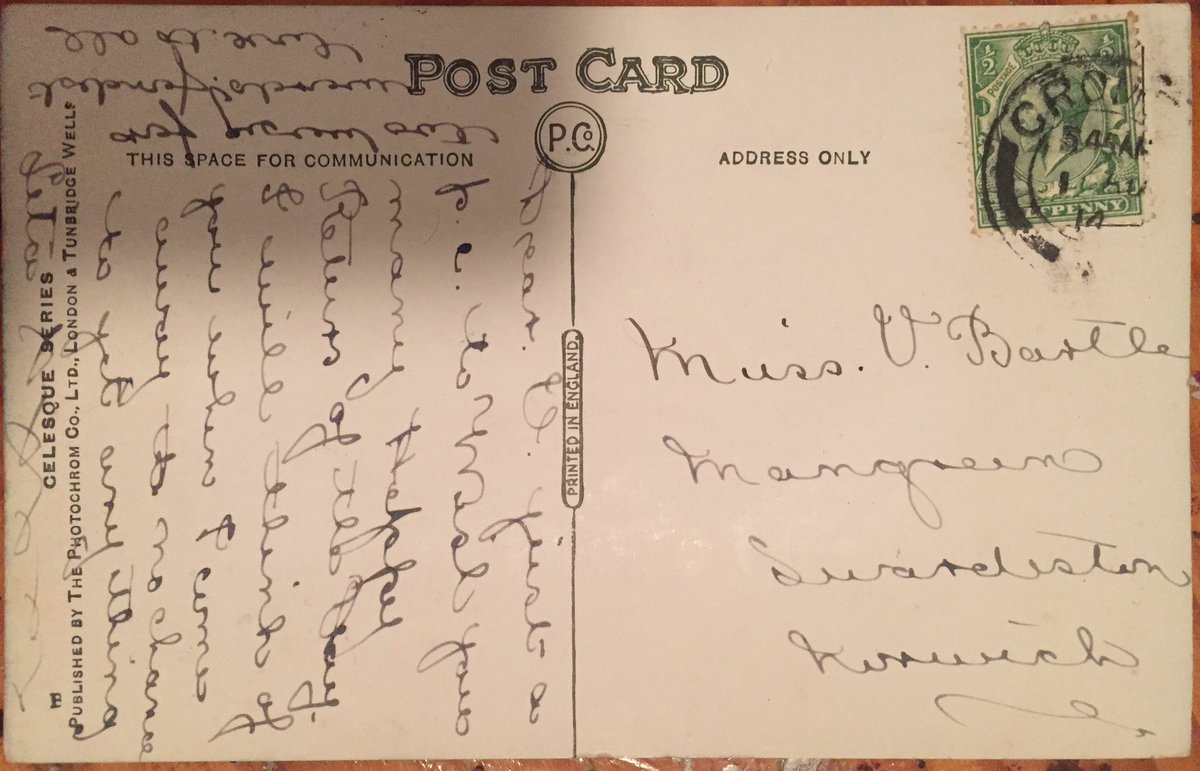 POST CARD
P. Co.
THIS SPACE FOR COMMUNICATION
ADDRESS ONLY
½ ½
POSTAGE
HALFPENNY
CRO
5.45AM
1 AU
14
Miss. V. Bartle
Mangreen
Swardeston
Norwich
PRINTED IN ENGLAND.
Dear V. Just a
p.c. to wish you
many Happy
Returns of the Day.
I will think of
you when I come
away th no chance
to get any thing
here
fondest
love to all
CELESQUE SERIES
PUBLISHED BY THE PHOTOCHROM CO., LTD., LONDON & TUNBRIDGE WELLS